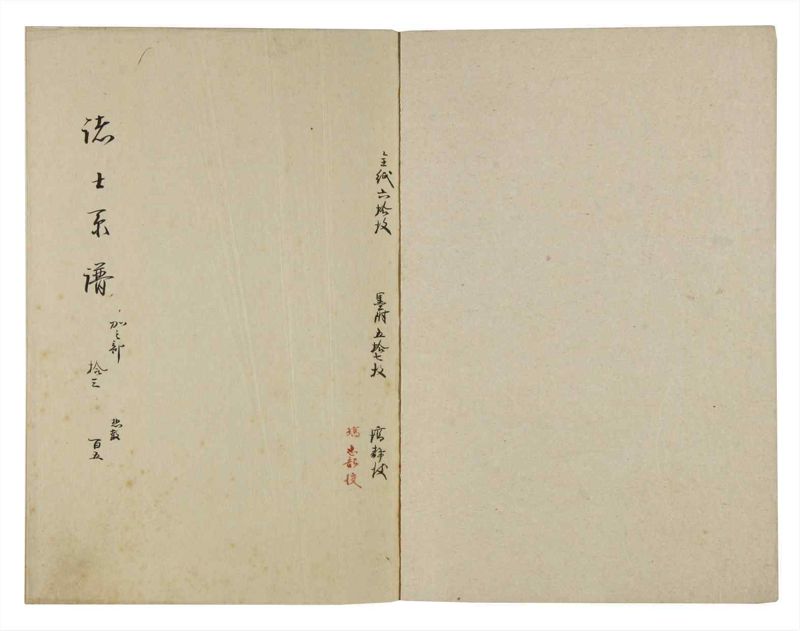 全紙六拾枚
墨附五拾七枚
諸士系譜
加之部
拾三
惣数
百五